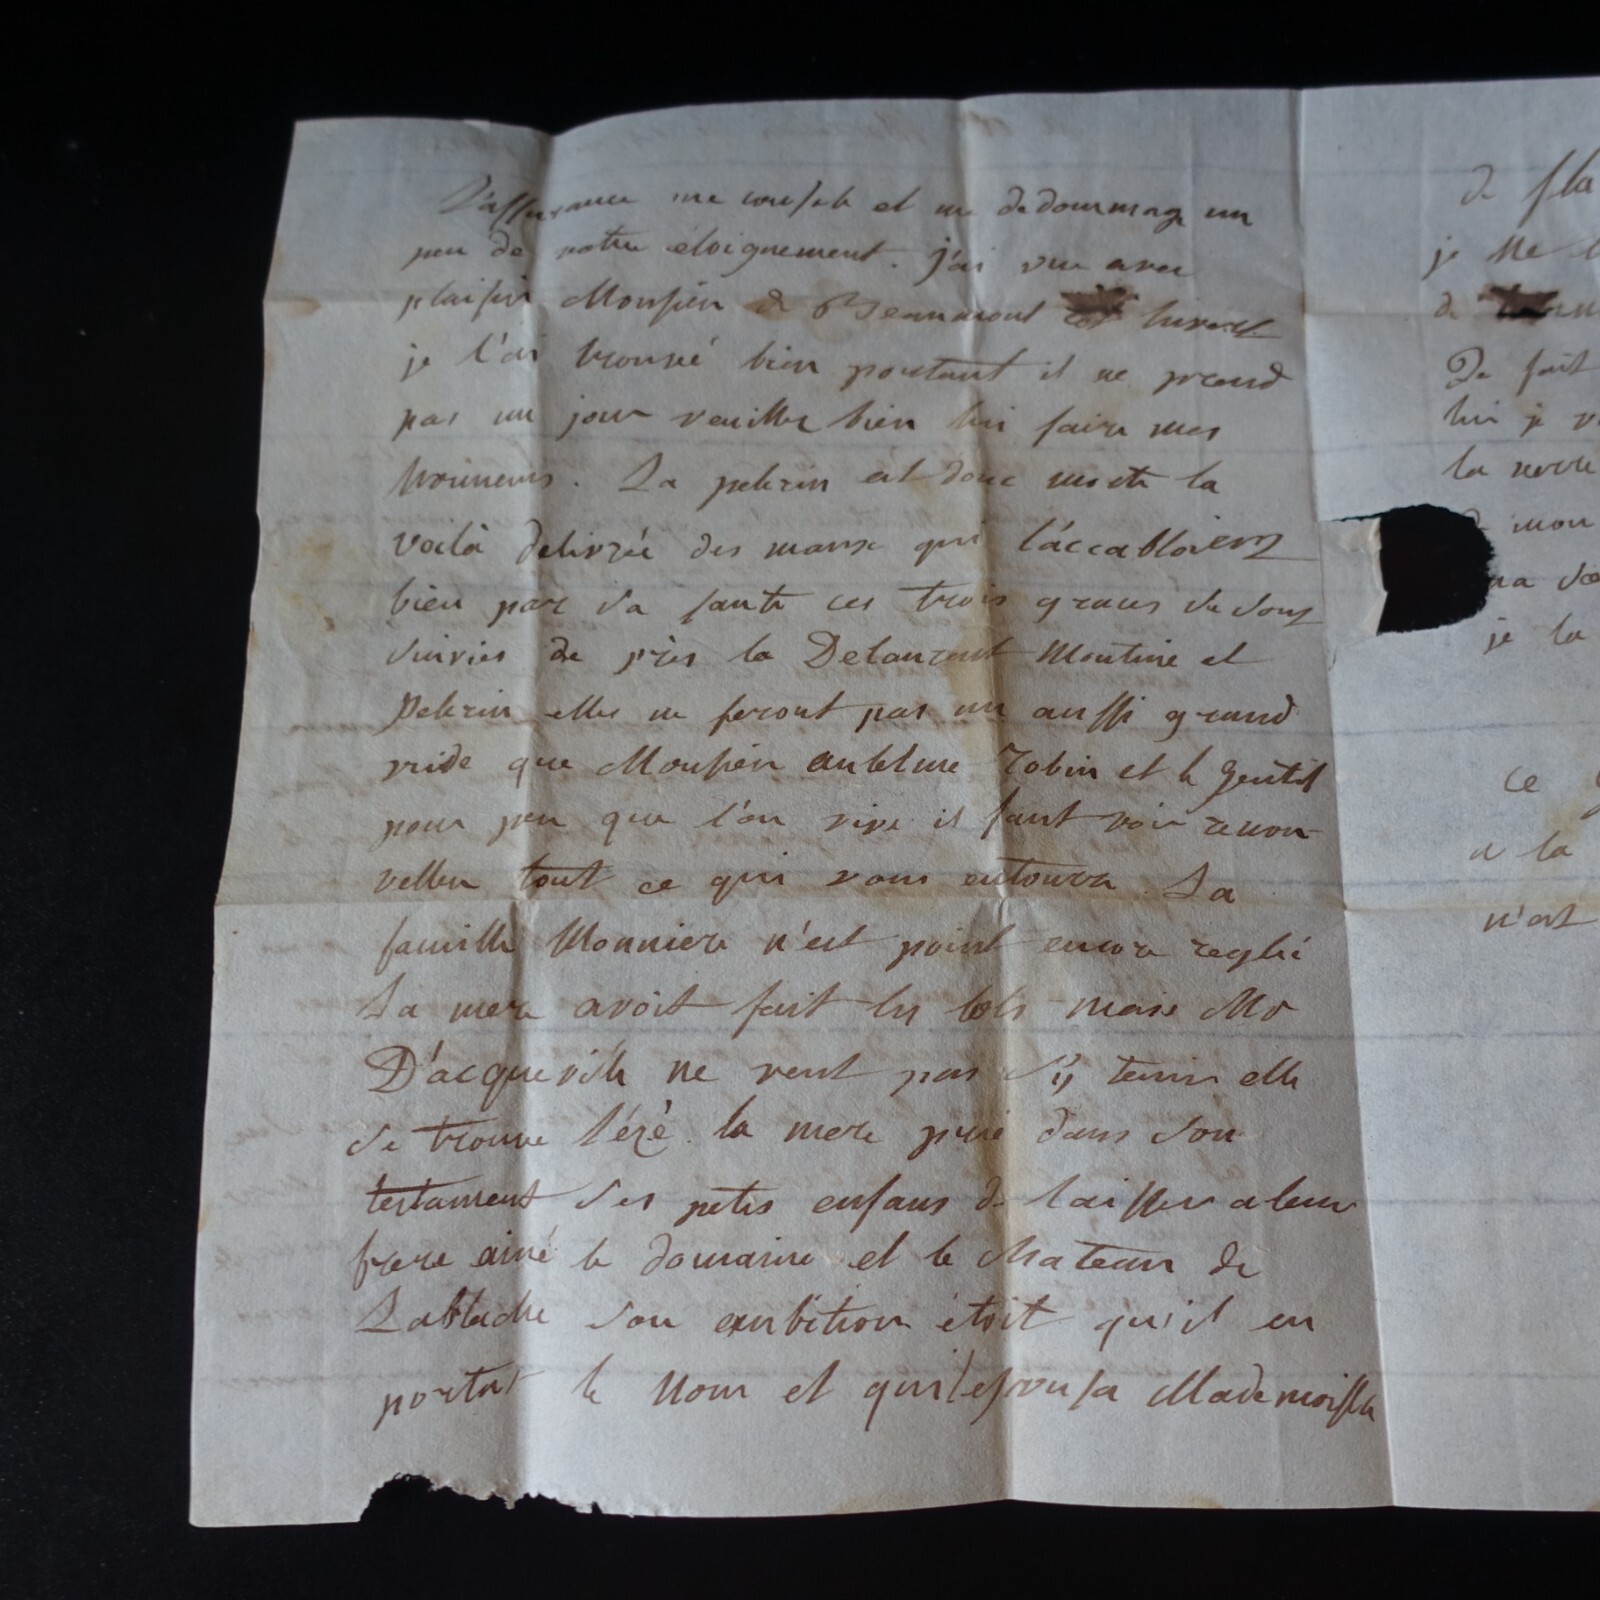 L'assurance me console et me dedommage un
peu de votre éloignement. j'ai vue avec
plaisir Monsieur de Beaumont cet hivert
je l'ai trouvé bien portant il ne prend
pas un jour veuillez bien lui faire mes
La pelerin est donc morte la
voilà delivrée des maux qui l'accabloient
bien par sa faute ces trois graces se sont
suivies de près la Delaurent Moutine et
pelerin elles ne feront pas un aussi grand
vide que Monsieur robin et le gentil
pour peu que l'on vive il faut voir renou
veller tout ce qui vous entoure. La
famille Monniere n'est point encore reglé
La mere avoit fait les lots mais Me
D'acqueville ne veut pas s'y tenir elle
se trouve lézé. la mere prie dans son
testament ses petis enfans de laisser a leur
frere ainé le domaine et le chateau de
Lablache son ambition étoit qu'il en
portat le nom et qu'il espousa Mademoiselle
de fla
je ne
de
De fait
lui je
la
mon
je la
ce
a la
n'est